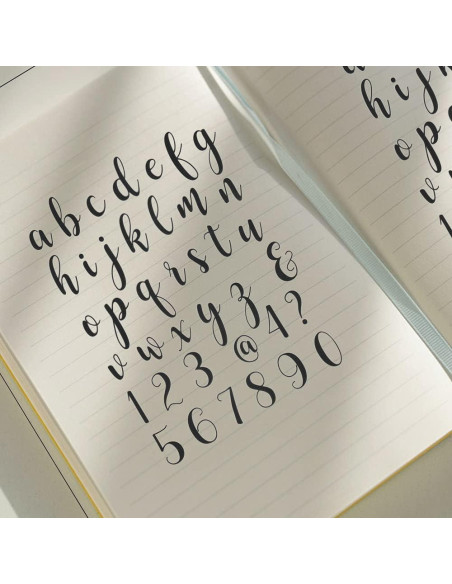 a b c d e f g
h i j k l m n
o p q r s t u
v w x y z &
1 2 3 @ 4 ?
5 6 7 8 9 0
h i j
o p
v
1